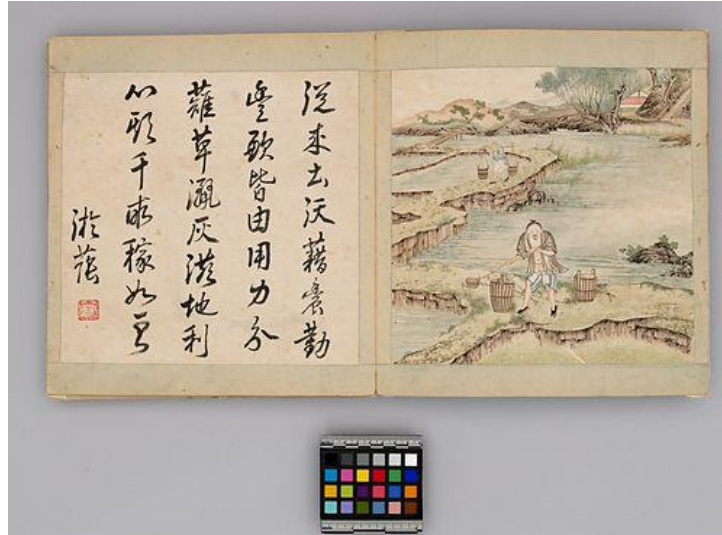 從來土沃藉農勤
豐歉皆由用力分
薙草灑灰滋地利
心期千畝稼如雲
淤蔭